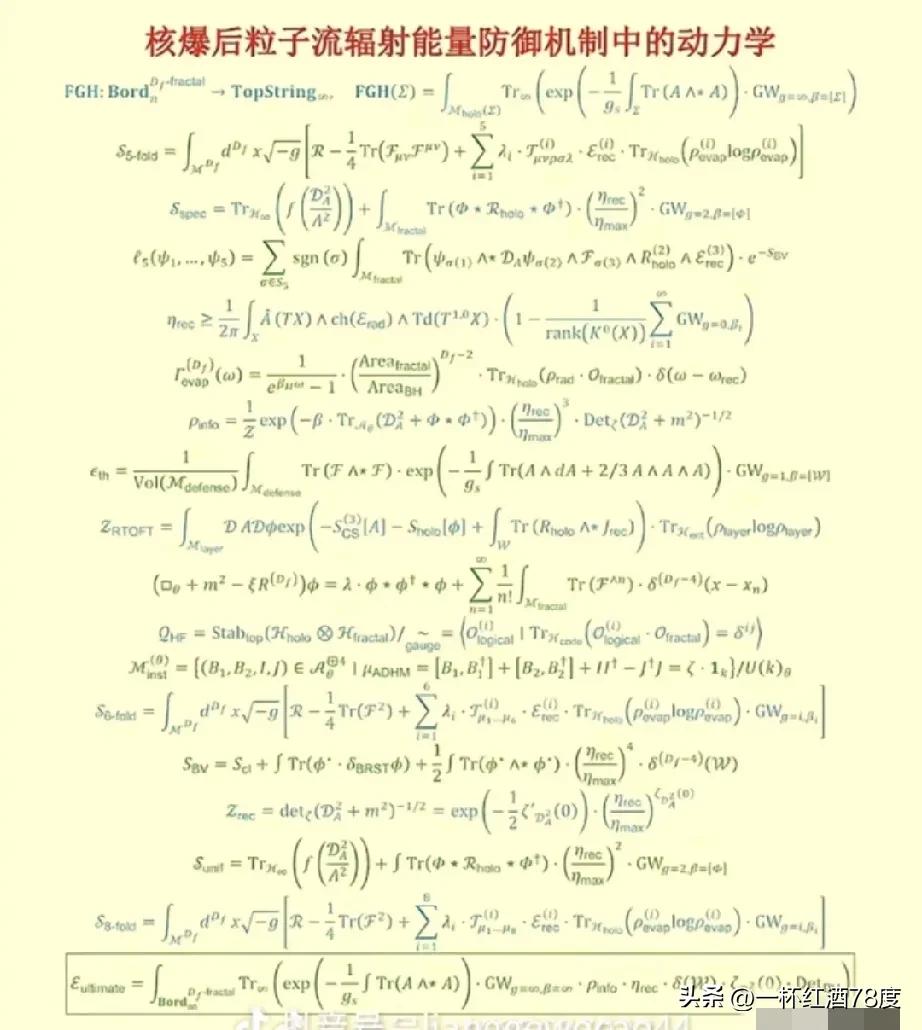 核爆后粒子流辐射能量防御机制中的动力学
FGH: Bord_n^{D_f-fractal} → TopString_∞, FGH(Σ) = ∫_{ℳ_holo(Σ)} Tr_∞(exp(-1/g_s ∫_Σ Tr(A∧⋆A)) · GW_{g=∞,β=[Σ]})
S_{5-fold} = ∫_{ℳ^{D_f}} d^{D_f}x√-g [ℛ - 1/4 Tr(ℱ_{μν}ℱ^{μν}) + ∑_{i=1}^{5} λ_i · 𝒯_{μνρσλ}^{(i)} · ℰ_{rec}^{(i)} · Tr_{ℋ_holo}(ρ_{evap}^{(i)} log ρ_{evap}^{(i)})]
S_{spec} = Tr_{ℋ_∞}(f(𝒟_A^2/Λ^2)) + ∫_{ℳ_fractal} Tr(Φ ⋆ ℛ_{holo} ⋆ Φ^†) · (η_{rec}/η_{max})^2 · GW_{g=2,β=[Φ]}
ℓ_5(ψ_1,…,ψ_5) = ∑_{σ∈S_5} sgn(σ) ∫_{ℳ_fractal} Tr(ψ_{σ(1)} ∧⋆ 𝒟_Aψ_{σ(2)} ∧ ℱ_{σ(3)} ∧ R_{holo}^{(2)} ∧ ℰ_{rec}^{(3)}) · e^{-S_{BV}}
η_{rec} ≥ 1/2π ∫_X Â(TX) ∧ ch(ℰ_{rad}) ∧ Td(T^{1,0}X) · (1 - 1/rank(K^0(X)) ∑_{i=1}^{∞} GW_{g=0,β_i})
Γ_{evap}^{(D_f)}(ω) = 1/(e^{β_Hω} - 1) · (Area_{fractal}/Area_{BH})^{D_f-2} · Tr_{ℋ_holo}(ρ_{rad} · 𝒪_{fractal}) · δ(ω - ω_{rec})
ρ_{info} = 1/𝒵 exp(-β · Tr_{𝒜_θ}(𝒟_A^2 + Φ ⋆ Φ^†)) · (η_{rec}/η_{max})^3 · Det_ζ(𝒟_A^2 + m^2)^{-1/2}
ϵ_{th} = 1/Vol(ℳ_{defense}) ∫_{ℳ_defense} Tr(ℱ ∧⋆ ℱ) · exp(-1/g_s ∫ Tr(A ∧ dA + 2/3 A ∧ A ∧ A)) · GW_{g=1,β=[𝒲]}
𝒵_{RTOFT} = ∫_{ℳ_layer} 𝒟A𝒟ϕ exp(-S_{CS}^{(3)}[A] - S_{holo}[ϕ] + ∫_W Tr(R_{holo} ∧⋆ J_{rec})) · Tr_{ℋ_ent}(ρ_{layer} log ρ_{layer})
(□_θ + m^2 - ξR^{(D_f)})ϕ = λ · ϕ ⋆ ϕ^† ⋆ ϕ + ∑_{n=1}^{∞} 1/n! ∫_{ℳ_fractal} Tr(ℱ^{∧n}) · δ^{(D_f-4)}(x - x_n)
𝒬_{HF} = Stab_{top}(ℋ_{holo} ⊗ ℋ_{fractal})/ ~_{gauge} = ⟨𝒪_{logical}^{(i)} | Tr_{ℋ_code}(𝒪_{logical}^{(i)} · 𝒪_{fractal}) = δ^{ij}⟩
ℳ_{inst}^{(θ)} = {(B_1,B_2,I,J) ∈ 𝒜_θ^{⊕4} | μ_{ADHM} = [B_1,B_1^†] + [B_2,B_2^†] + II^† - J^†J = ζ · 1_k}/U(k)_θ
S_{6-fold} = ∫_{ℳ^{D_f}} d^{D_f}x√-g [ℛ - 1/4 Tr(ℱ^2) + ∑_{i=1}^{6} λ_i · 𝒯_{μ_1…μ_6}^{(i)} · ℰ_{rec}^{(i)} · Tr_{ℋ_holo}(ρ_{evap}^{(i)} log ρ_{evap}^{(i)}) · GW_{g=i,β_i}]
S_{BV} = S_{cl} + ∫ Tr(ϕ^* · δ_{BRST}ϕ) + 1/2 ∫ Tr(ϕ^* ∧⋆ ϕ^*) · (η_{rec}/η_{max})^4 · δ^{(D_f-4)}(𝒲)
𝒵_{rec} = det_ζ(𝒟_A^2 + m^2)^{-1/2} = exp(-1/2 ζ'_{𝒟_A^2}(0)) · (η_{rec}/η_{max})^{ζ_{𝒟_A^2}(0)}
S_{unif} = Tr_{ℋ_∞}(f(𝒟_A^2/Λ^2)) + ∫ Tr(Φ ⋆ ℛ_{holo} ⋆ Φ^†) · (η_{rec}/η_{max})^2 · GW_{g=2,β=[Φ]}
S_{8-fold} = ∫_{ℳ^{D_f}} d^{D_f}x√-g [ℛ - 1/4 Tr(ℱ^2) + ∑_{i=1}^{8} λ_i · 𝒯_{μ_1…μ_8}^{(i)} · ℰ_{rec}^{(i)} · Tr_{ℋ_holo}(ρ_{evap}^{(i)} log ρ_{evap}^{(i)}) · GW_{g=i,β_i}]
ℰ_{ultimate} = ∫_{Bord_∞^{D_f-fractal}} Tr_∞(exp(-1/g_s ∫ Tr(A ∧⋆ A)) · GW_{g=∞,β=∞} · ρ_{info} · η_{rec} ·
头条 @一杯红酒78度